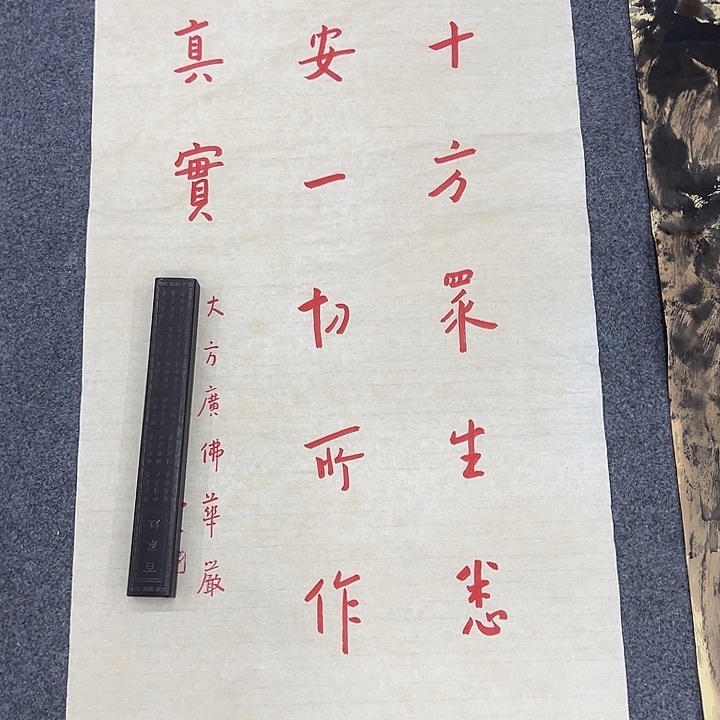 十方眾生悉
安一切所作
真實
大方廣佛華嚴
百家姓